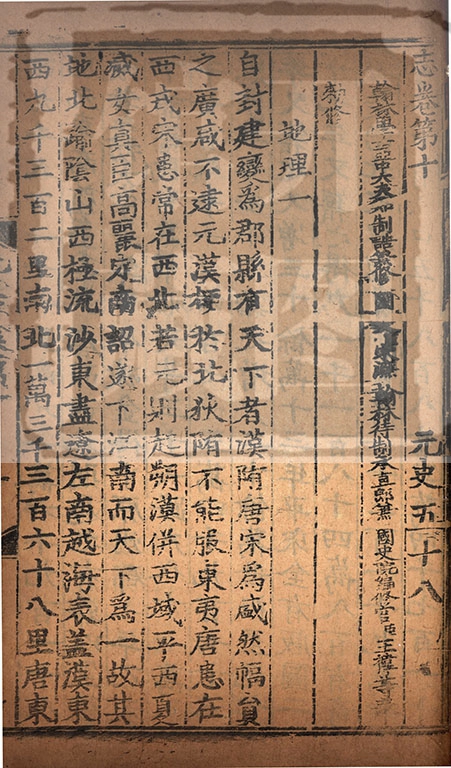 志卷第十 元史五十八
翰林學士亞中大夫知制誥兼修國史宋濂 翰林待制承直郎兼國史院編修官臣王禕等奉
勑修
地理一
自封建變爲郡縣有天下者漢隋唐宋爲盛然幅員
之廣咸不逮元漢梗於北狄隋不能服東夷唐患在
西戎宋患常在西北若元則起朔漠併西域平西夏
滅女真臣高麗定南詔遂下江南而天下爲一故其
地北踰陰山西極流沙東盡遼左南越海表蓋漢東
西九千三百二里南北一萬三千三百六十八里唐東